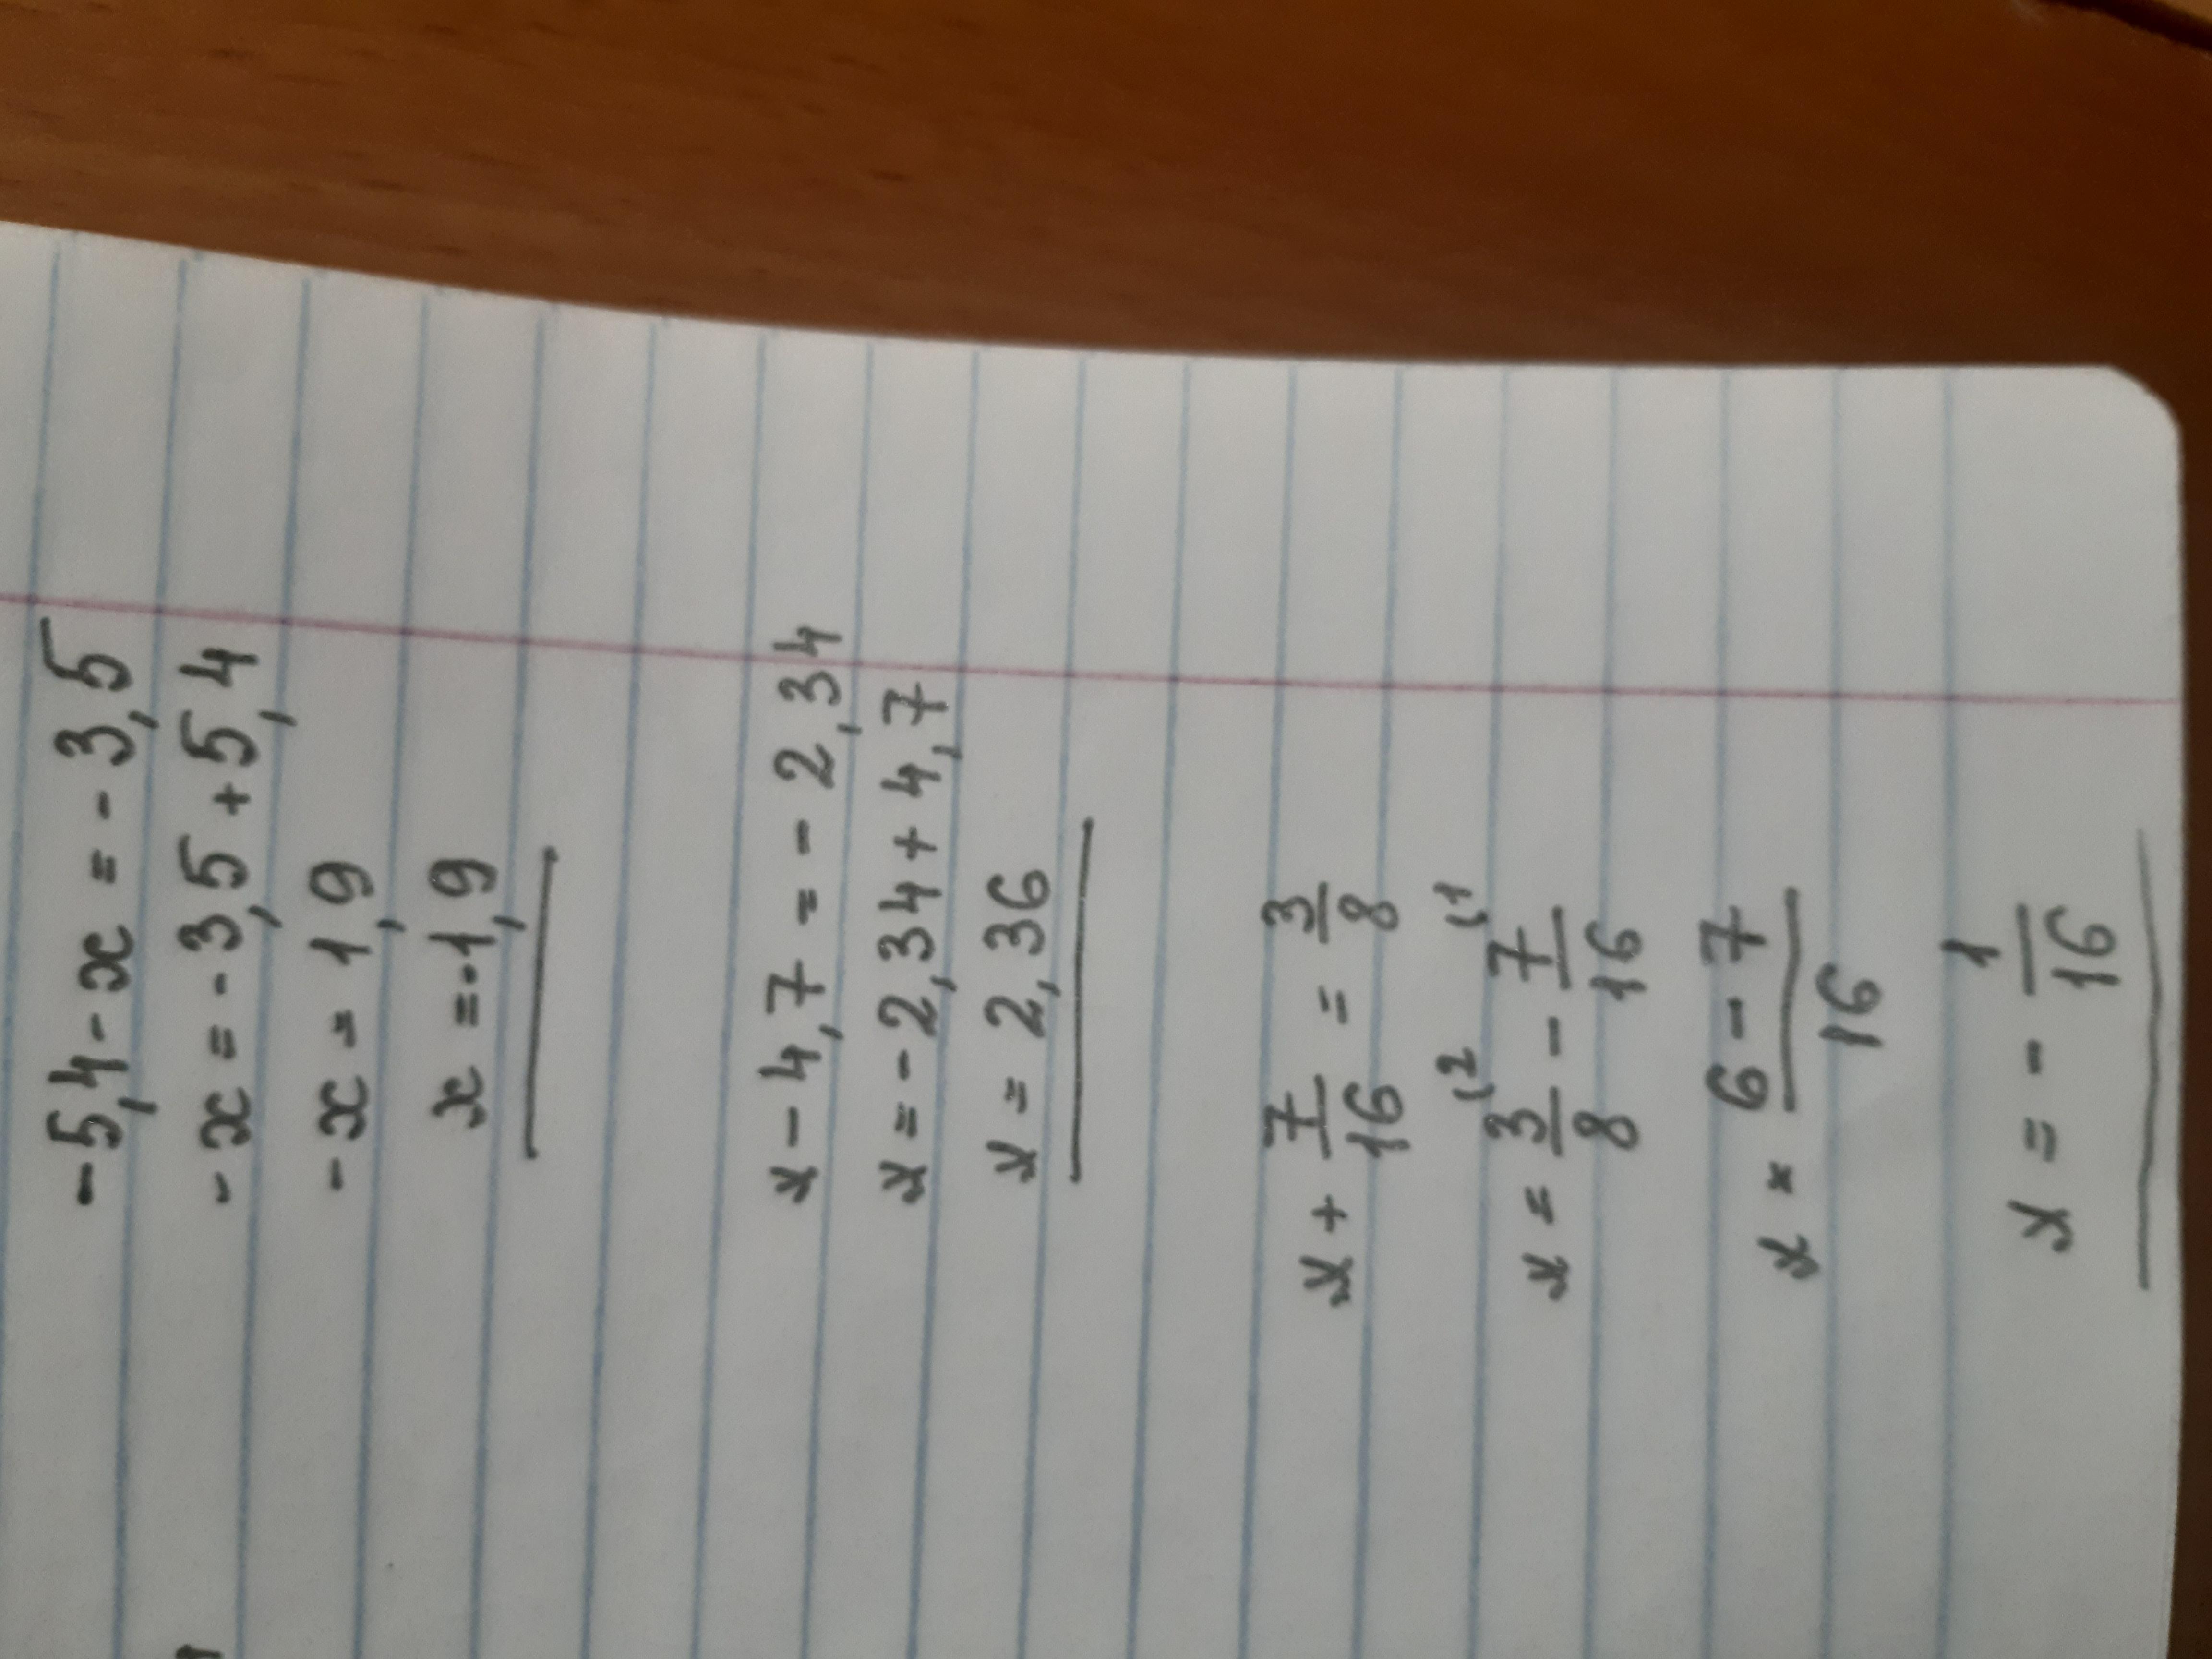 -5,4-x = -3,5
-x = -3,5+5,4
-x = 1,9
x = -1,9
x-4,7 = -2,34
x = -2,34+4,7
x = 2,36
x + 7/16 = 3/8
x = 3/8 (2 - 7/16 (1
x = 6-7/16
x = - 1/16